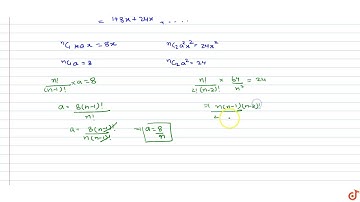 = 1+8x+24x² . . . . .
ⁿC₁ xax = 8x ⁿC₂a²x² = 24x²
ⁿC₁a = 8 ⁿC₂a² = 24
n!/(n-1)! × a = 8 n!/2!(n-2)! × 64/n² = 24
a = 8(n-1)!/n! ⇒ n(n-1)(n-2)!
a = 8(n-1)!/n(n-1)! ⇒ a = 8/n